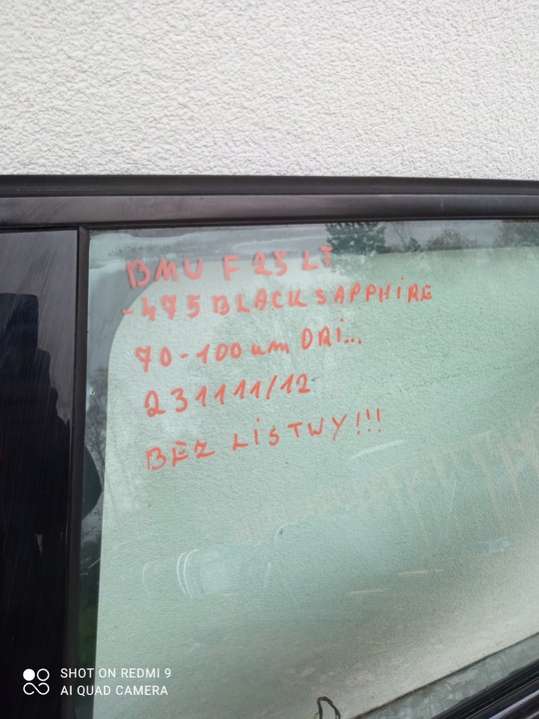 BMW F25 LT
-475 BLACK SAPPHIRE
70-100 um ORI...
231111/12
BEZ LISTWY!!!
SHOT ON REDMI 9
AI QUAD CAMERA